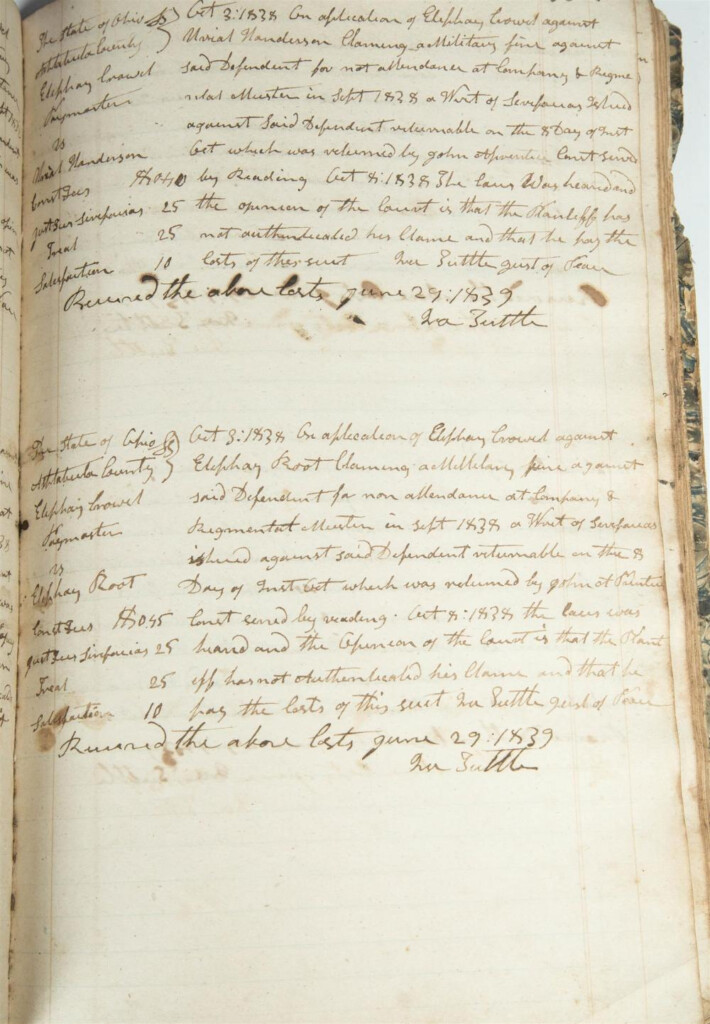 The State of Ohio ss Oct 3: 1838 On aplication of Eliphaz Crowel against
Ashtabula County Urial Handerson Claming a Military fine against
Eliphaz Crowel said Defendent for not attendance at Company & Regme
Paymaster ntal Muster in Sept 1838 a Writ of Sirefaias Ishued
vs against Said Defendent returnable on the 8 Day of Inst
Urial Handerson Oct which was returned by John Const served
Const Fees $0 40 by Reading Oct 8: 1838 The Caus Was heard and
Just Fees Sirefaias 25 the opinion of the Court is that the Plantiff has
Treal 25 not authendicated his Clame and that he pay the
Satisfaction 10 Costs of this suit Ira Tuttle Just of Peace
Received the above Costs June 29: 1839
Ira Tuttle
The State of Ohio ss Oct 3: 1838 On aplication of Eliphaz Crowel against
Ashtabula County Eliphaz Root Claming a Millitary fine against
Eliphaz Crowel said Defendent for non attendance at Company &
Paymaster Regimental Muster in Sept 1838 a Writ of Sirefaias
vs ishued against said Defendent returnable on the 8
Eliphaz Root Day of Inst Oct which was returned by John
Const Fees $0 45 Const served by reading. Oct 8: 1838 the Caus was
Just Fees Sirefaias 25 heard and the Opinion of the Court is that the Plant
Treal 25 iff has not Authenticated his Clame and that he
Satisfaction 10 pay the Costs of this suit Ira Tuttle Just of Peace
Received the above Costs June 29: 1839
Ira Tuttle